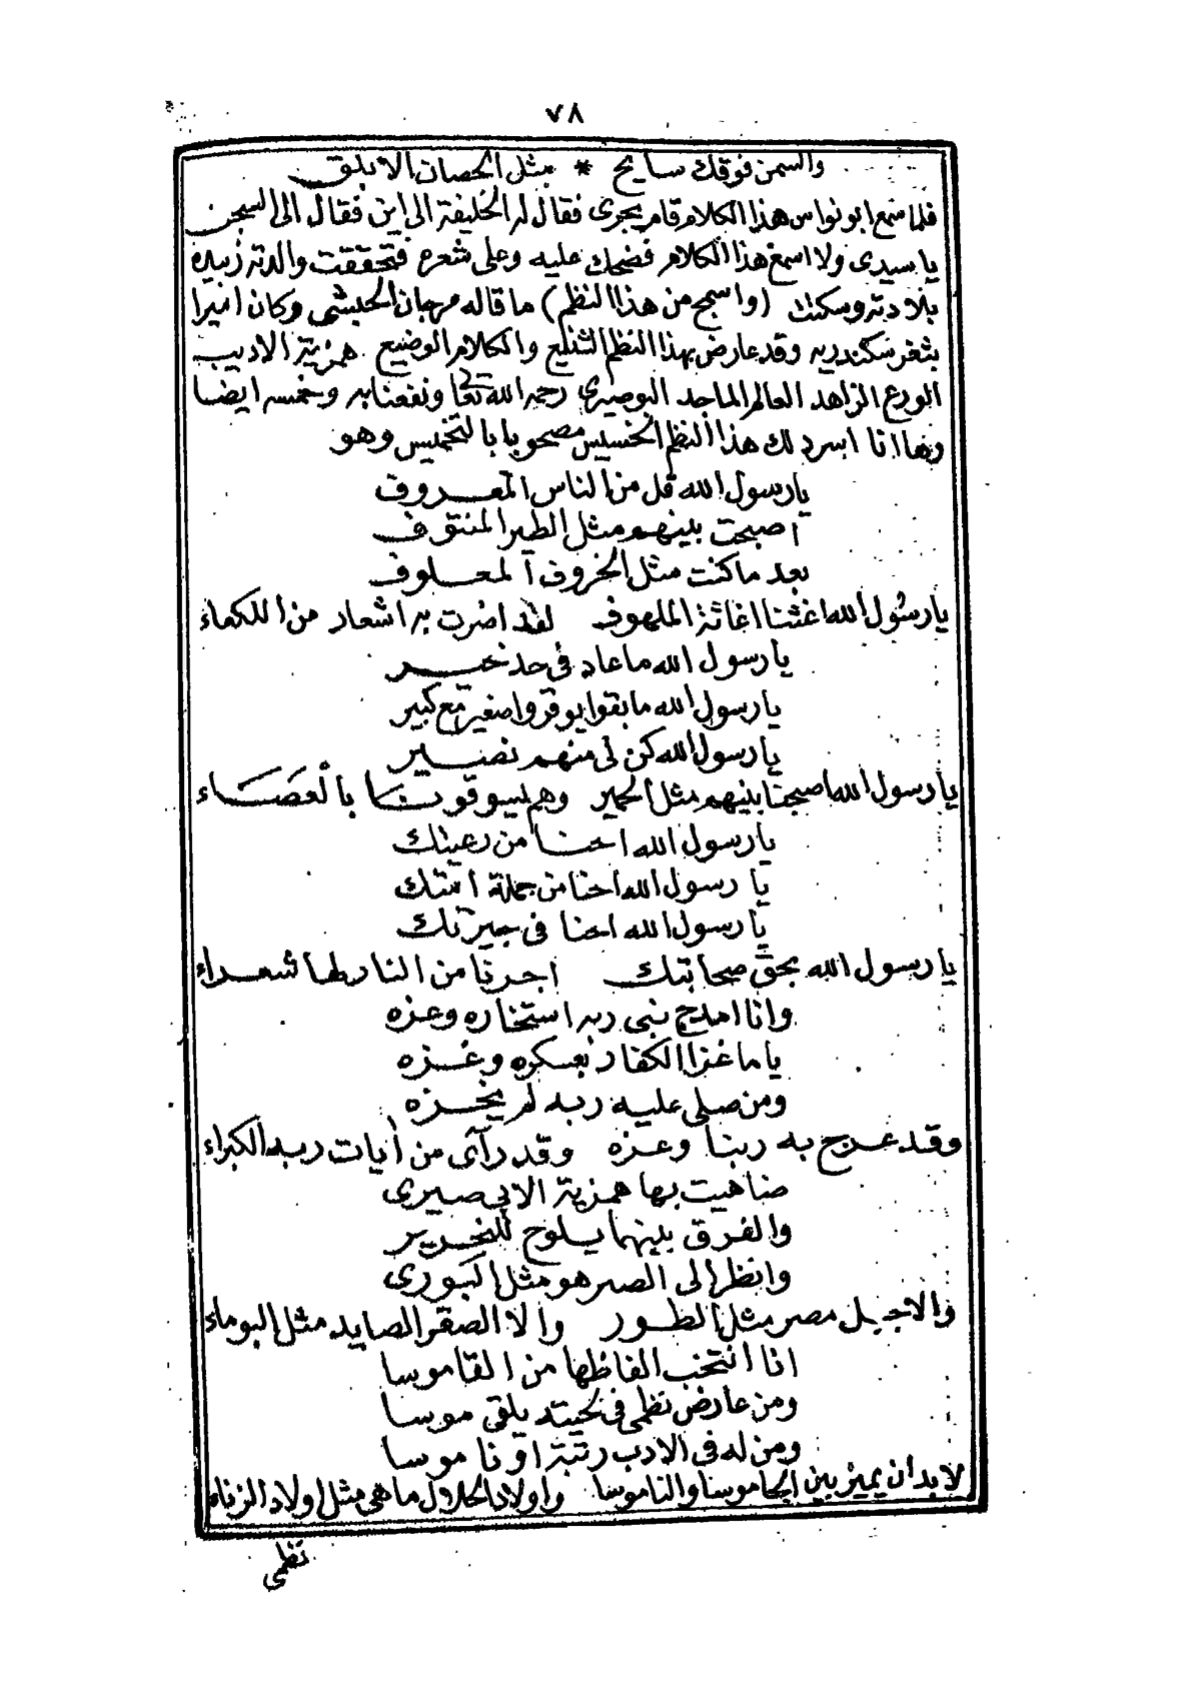 ٧٨
والسمن فوقك سايح * مثل الحصان الابلق
فلما سمع ابو نواس هذا الكلام قام يجرى فقال له الخليفة الى اين فقال الى السجن
يا سيدى ولا اسمع هذا الكلام فضحك عليه وعلى شعره فتحققت والدته زبيده
بلادته وسكتت (واسمج من هذا النظم) ما قاله مرجان الحبشى وكان اميرا
بثغر سكندريه وقد عارض بهذا النظم الشنيع والكلام الوضيع همزية الاديب
الورع الزاهد العالم الماجد البوصيرى رحمه الله تعالى ونفعنا به وخمسه ايضا
وها انا اسرد لك هذا النظم الخسيس مصحوبا بالتخميس وهو
يا رسول الله قل من الناس المعروف
اصبحت بينهم مثل الطير المنتوف
بعد ما كنت مثل الخروف المعلوف
يا رسول الله اغثنا اغاثة الملهوف لقد اضرت به اشعار من اللكماء
يا رسول الله ما عاد فى حد خير
يا رسول الله ما بقوا يوقروا صغير مع كبير
يا رسول الله كن لى منهم نصير
يا رسول الله اصبحنا بينهم مثل الحمير وهم يسوقوننا بالعصاء
يا رسول الله احنا من رعيتك
يا رسول الله احنا من جملة امتك
يا رسول الله احنا فى جيرتك
يا رسول الله بحق صحابتك اجرنا من النار لها شعداء
وانا امدح نبى ربه استخاره وعزه
ياما غزا الكفار بعسكره وغزه
ومن صلى عليه ربه لم يخزه
وقد عرج به ربنا وعزه وقد رآى من أيات ربه الكبراء
ضاهيت بها همزية الابى صيرى
والفرق بينهما يلوح للنحرير
وانظر الى الصير هو مثل البورى
والاجبيل مصر مثل الطور والا الصقر الصايد مثل البوماء
انا انتخب الفاظها من القاموسا
ومن عارض نظمى فى لحيته يلقى موسا
ومن له فى الادب رتبة او ناموسا
لابد ان يميز بين الجاموسا والناموسا واولاد الحلال ما هى مثل اولاد الزناء
نظمى